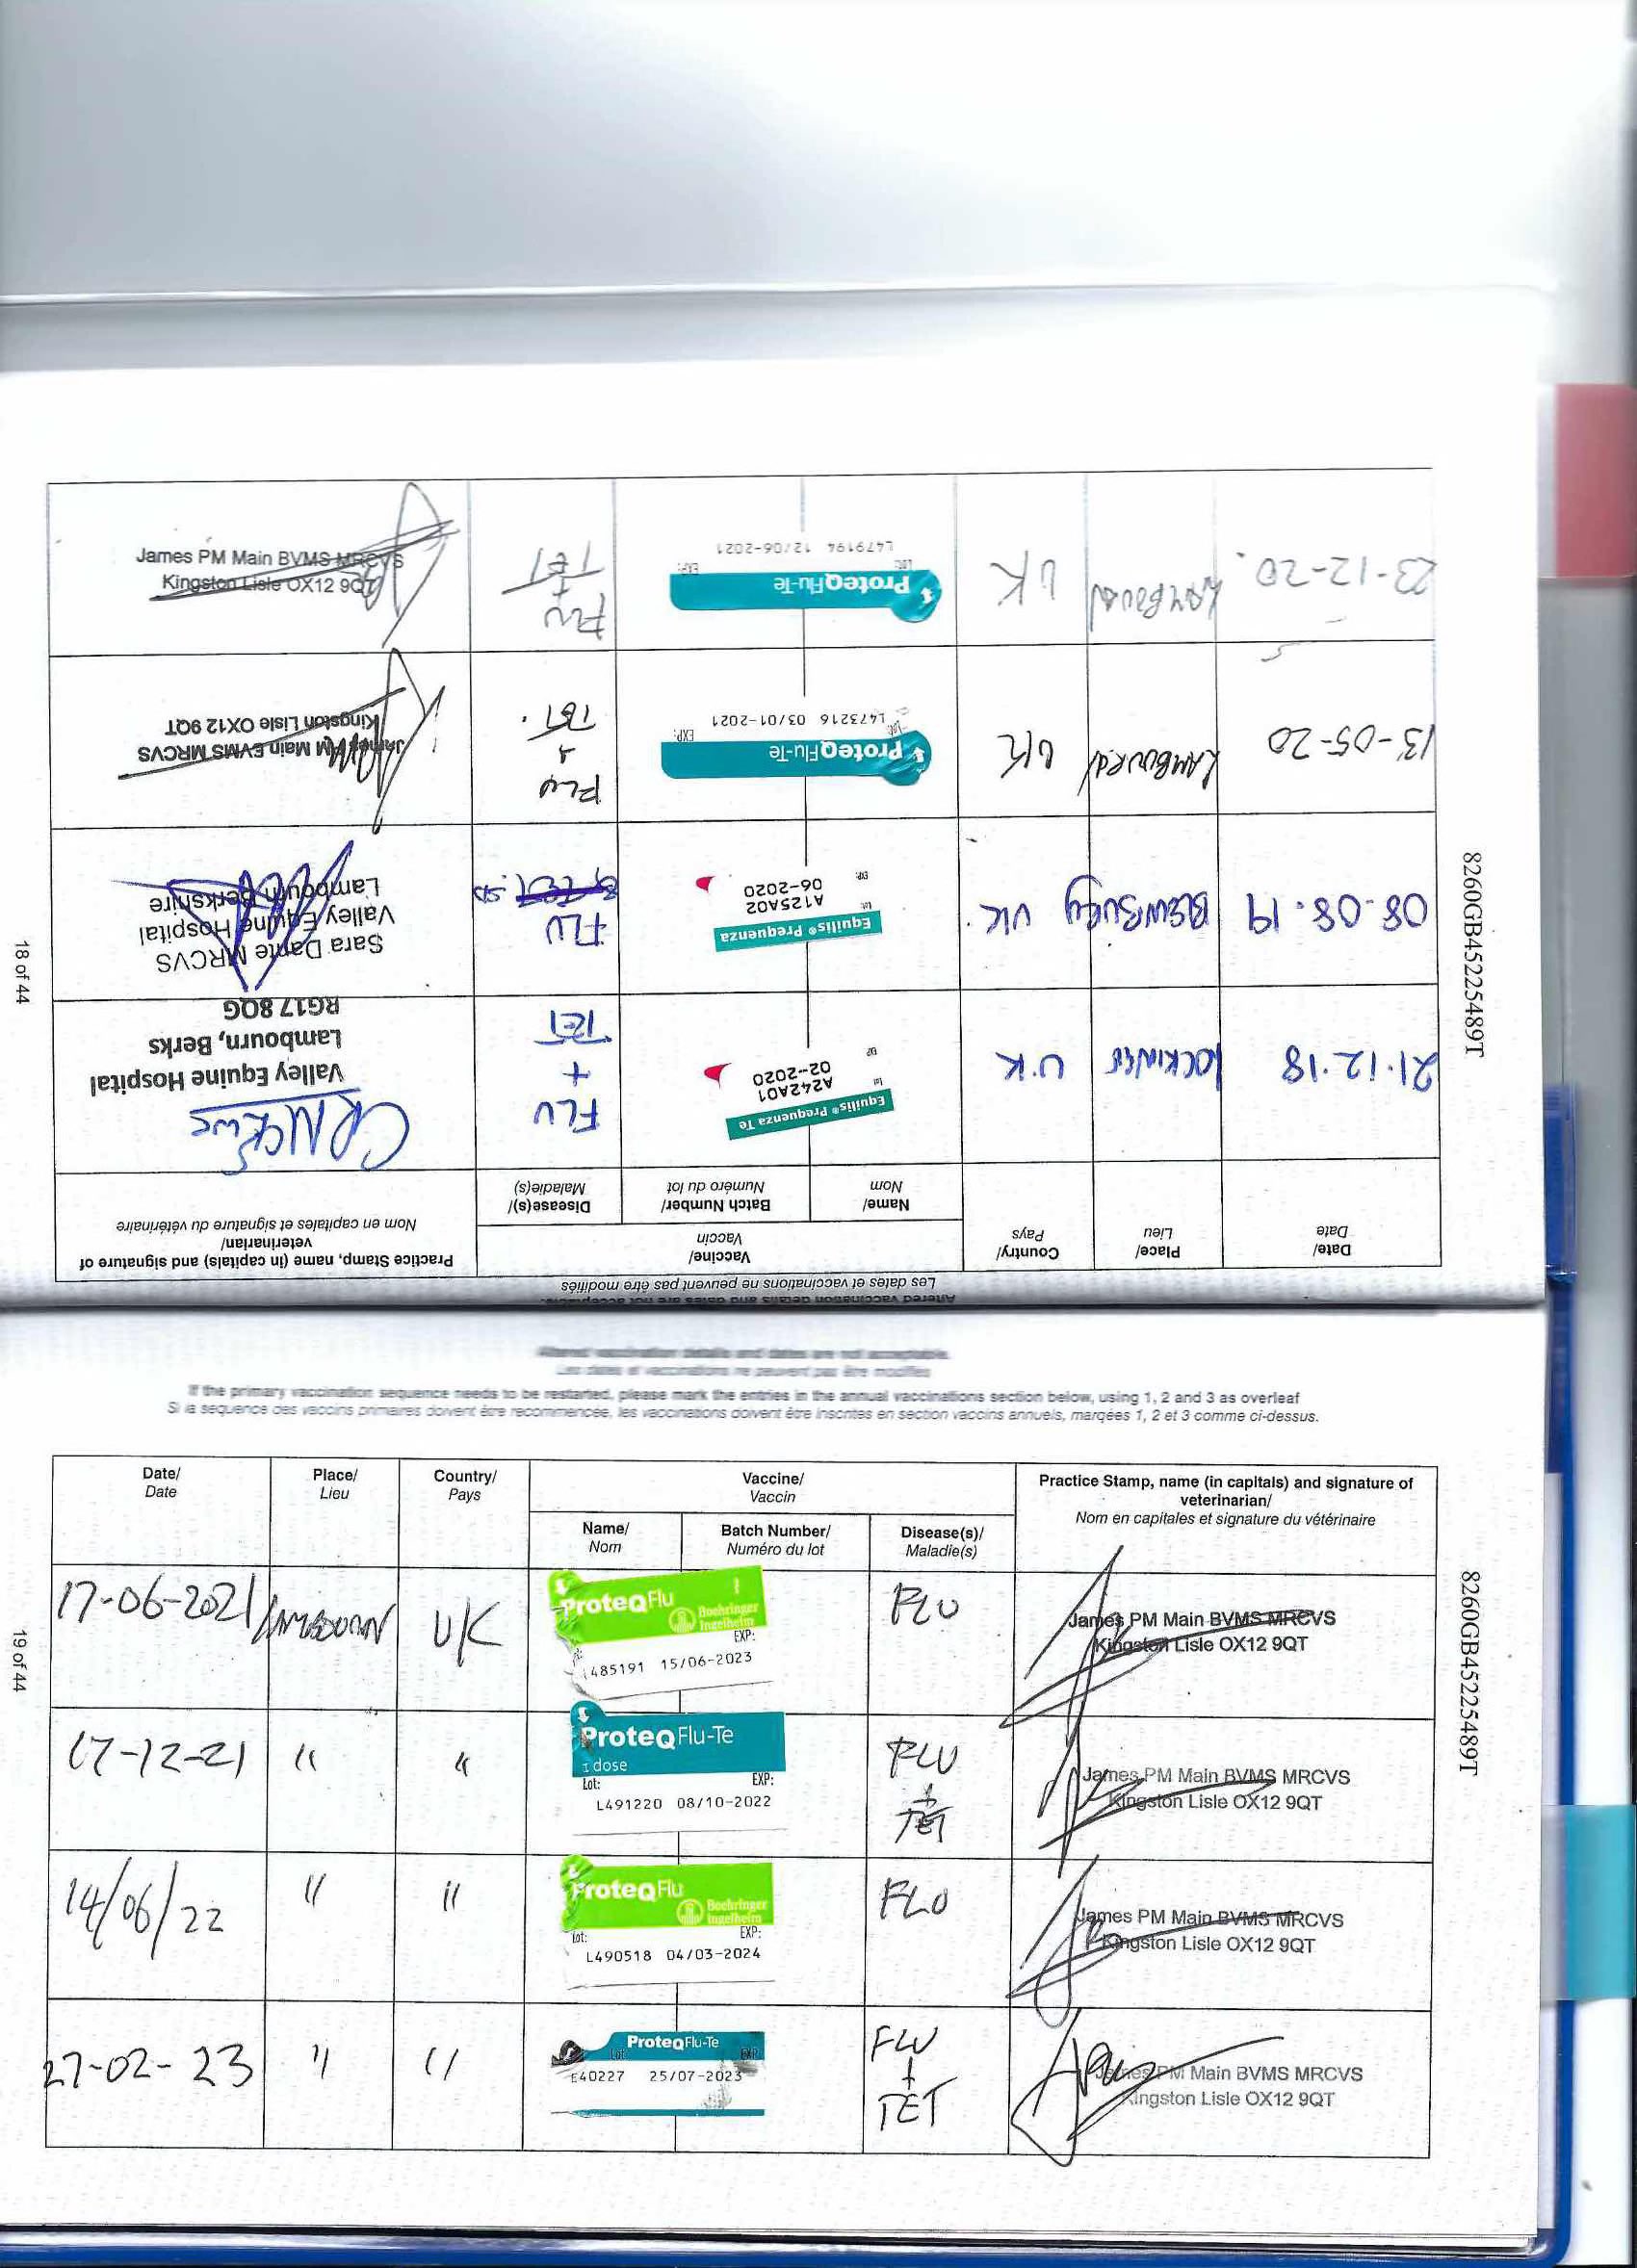 Altered vaccination details and dates are not acceptable.
Les dates et vaccinations ne peuvent pas être modifiés
Date/
Date
Place/
Lieu
Country/
Pays
Vaccine/
Vaccin
Name/
Nom
Batch Number/
Numéro du lot
Disease(s)/
Maladie(s)
Practice Stamp, name (in capitals) and signature of
veterinarian/
Nom en capitales et signature du vétérinaire
21.12.18
LOCKINGE
U.K
Equilis® Prequenza Te
lot
A242A01
02-2020
FLU
+
TET
Valley Equine Hospital
Lambourn, Berks
RG17 8QG
08.08.19
BLEWBURY
UK.
Equilis® Prequenza
lot
A125A02
06-2020
EXP
FLU
Sara Dante MRCVS
Valley Equine Hospital
Lambourn Berkshire
13-05-20
LAMBOURN
UK
ProteqFlu-Te
Lot: EXP:
L473216 03/01-2021
FLU
+
TET.
James PM Main BVMS MRCVS
Kingston Lisle OX12 9QT
23-12-20.
LAMBOURN
UK
ProteqFlu-Te
Lot: EXP:
L479194 12/06-2021
FLU
+
TET
James PM Main BVMS MRCVS
Kingston Lisle OX12 9QT
8260GB45225489T
18 of 44
Altered vaccination details and dates are not acceptable.
Les dates et vaccinations ne peuvent pas être modifiés
If the primary vaccination sequence needs to be restarted, please mark the entries in the annual vaccinations section below, using 1, 2 and 3 as overleaf
Si la sequence des vaccins primaires doivent être recommencée, les vaccinations doivent être inscrites en section vaccins annuels, marqées 1, 2 et 3 comme ci-dessus.
Date/
Date
Place/
Lieu
Country/
Pays
Vaccine/
Vaccin
Name/
Nom
Batch Number/
Numéro du lot
Disease(s)/
Maladie(s)
Practice Stamp, name (in capitals) and signature of
veterinarian/
Nom en capitales et signature du vétérinaire
17-06-2021
LAMBOURN
UK
ProteqFlu
Boehringer
Ingelheim
EXP:
L485191 15/06-2023
FLU
James PM Main BVMS MRCVS
Kingston Lisle OX12 9QT
17-12-21
"
"
ProteqFlu-Te
1 dose
Lot: EXP:
L491220 08/10-2022
FLU
+
TET
James PM Main BVMS MRCVS
Kingston Lisle OX12 9QT
14/06/22
"
"
ProteqFlu
Boehringer
Ingelheim
Lot: EXP:
L490518 04/03-2024
FLU
James PM Main BVMS MRCVS
Kingston Lisle OX12 9QT
27-02-23
"
"
ProteqFlu-Te
Lot: EXP:
E40227 25/07-2023
FLU
+
TET
James PM Main BVMS MRCVS
Kingston Lisle OX12 9QT
8260GB45225489T
19 of 44